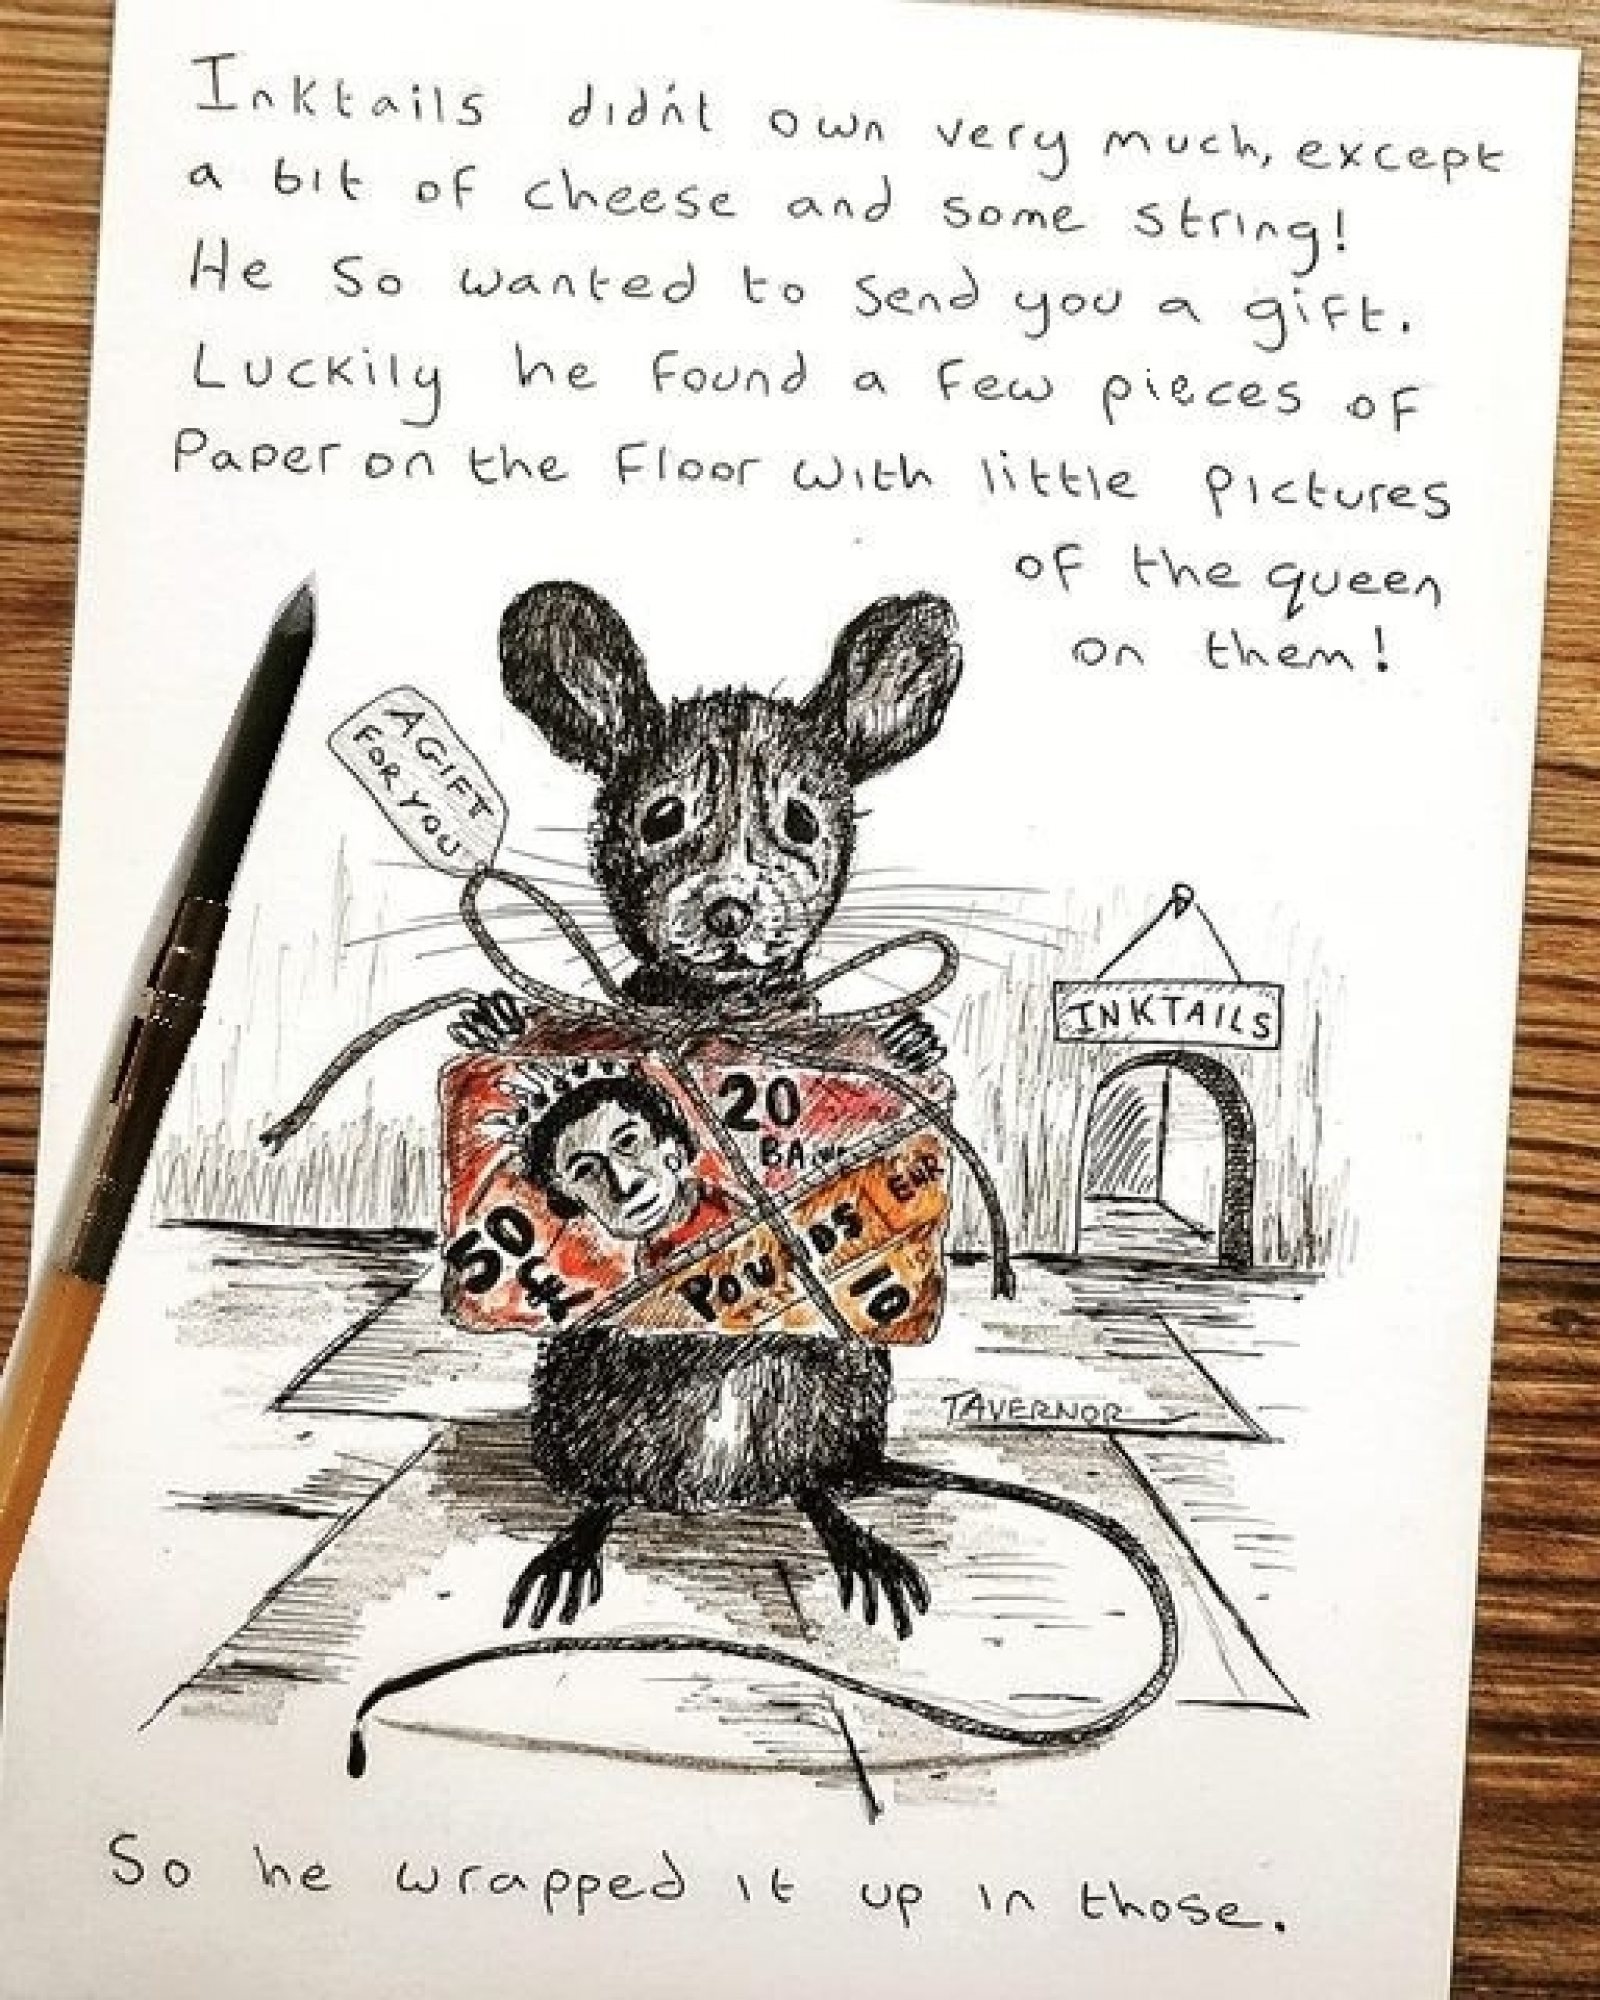 Inktails didn't own very much, except
a bit of cheese and some string!
He so wanted to send you a gift.
Luckily he found a few pieces of
paper on the floor with little pictures
of the queen
on them!
A GIFT
FOR YOU
INKTAILS
20
BAN
50
£
POU
DS
10
TAVERNOR
So he wrapped it up in those.